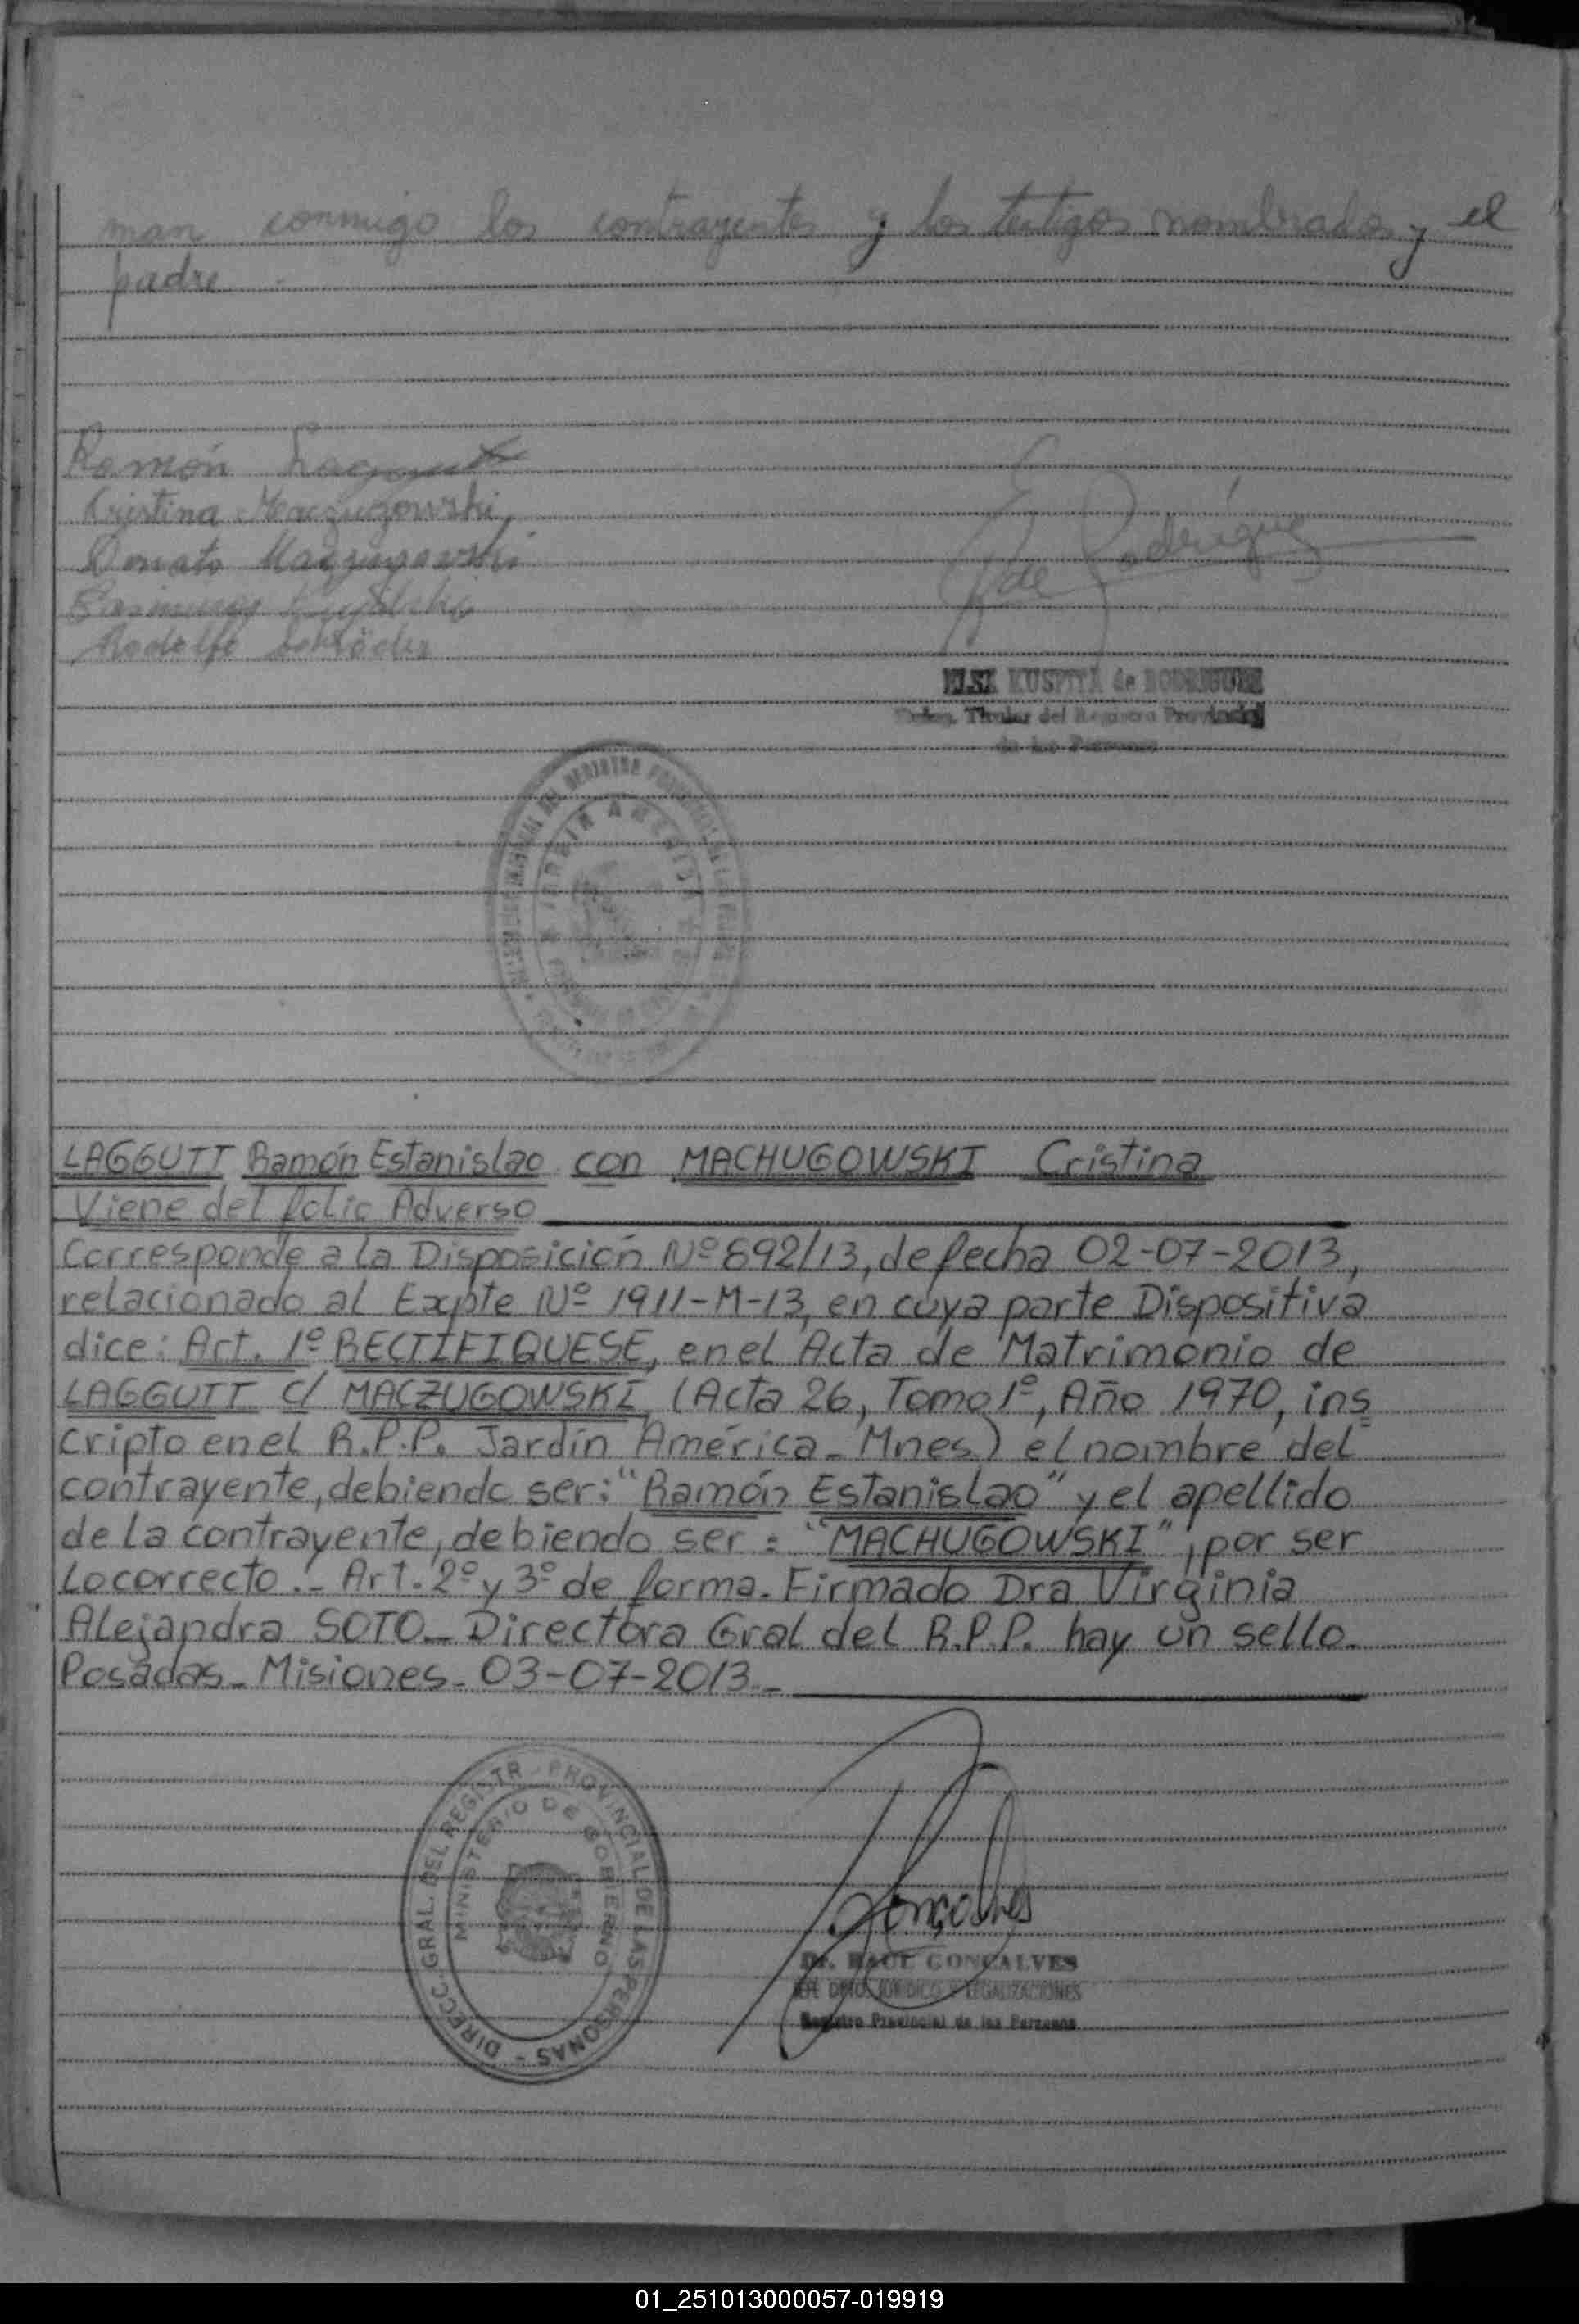 man conmigo los contrayentes y los testigos nombrados y el
padre.-
Ramón
Kristina Maczugowski
Donato Maczugowski
Rodolfo Schröder
E de Rodríguez
ELSA KUSPITA de RODRIGUEZ
Deleg. Titular del Registro Provincial
de las Personas
LAGGUTT Ramón Estanislao con MACHUGOWSKI Cristina
Viene del folio Adverso
Corresponde a la Disposición Nº 892/13, de fecha 02-07-2013,
relacionado al Expte Nº 1911-M-13, en cuya parte Dispositiva
dice: Art. 1º RECTIFIQUESE, en el Acta de Matrimonio de
LAGGUTT C/ MACZUGOWSKI, (Acta 26, Tomo 1º, Año 1970, ins
cripto en el R.P.P. Jardín América - Mnes.) el nombre del
contrayente, debiendo ser: "Ramón Estanislao" y el apellido
de la contrayente, debiendo ser: "MACHUGOWSKI", por ser
Lo correcto.- Art. 2º y 3º de forma. Firmado Dra Virginia
Alejandra SOTO - Directora Gral del R.P.P. hay un sello.
Posadas - Misiones - 03-07-2013.-
DIRECC. GRAL. DEL REGISTR PROVINCIAL DE LAS PERSONAS -
MINISTERIO DE GOBIERNO
Gonçalves
Dr. RAUL GONÇALVES
DPTO. JURIDICO Y LEGALIZACIONES
Registro Provincial de las Personas
01_251013000057-019919